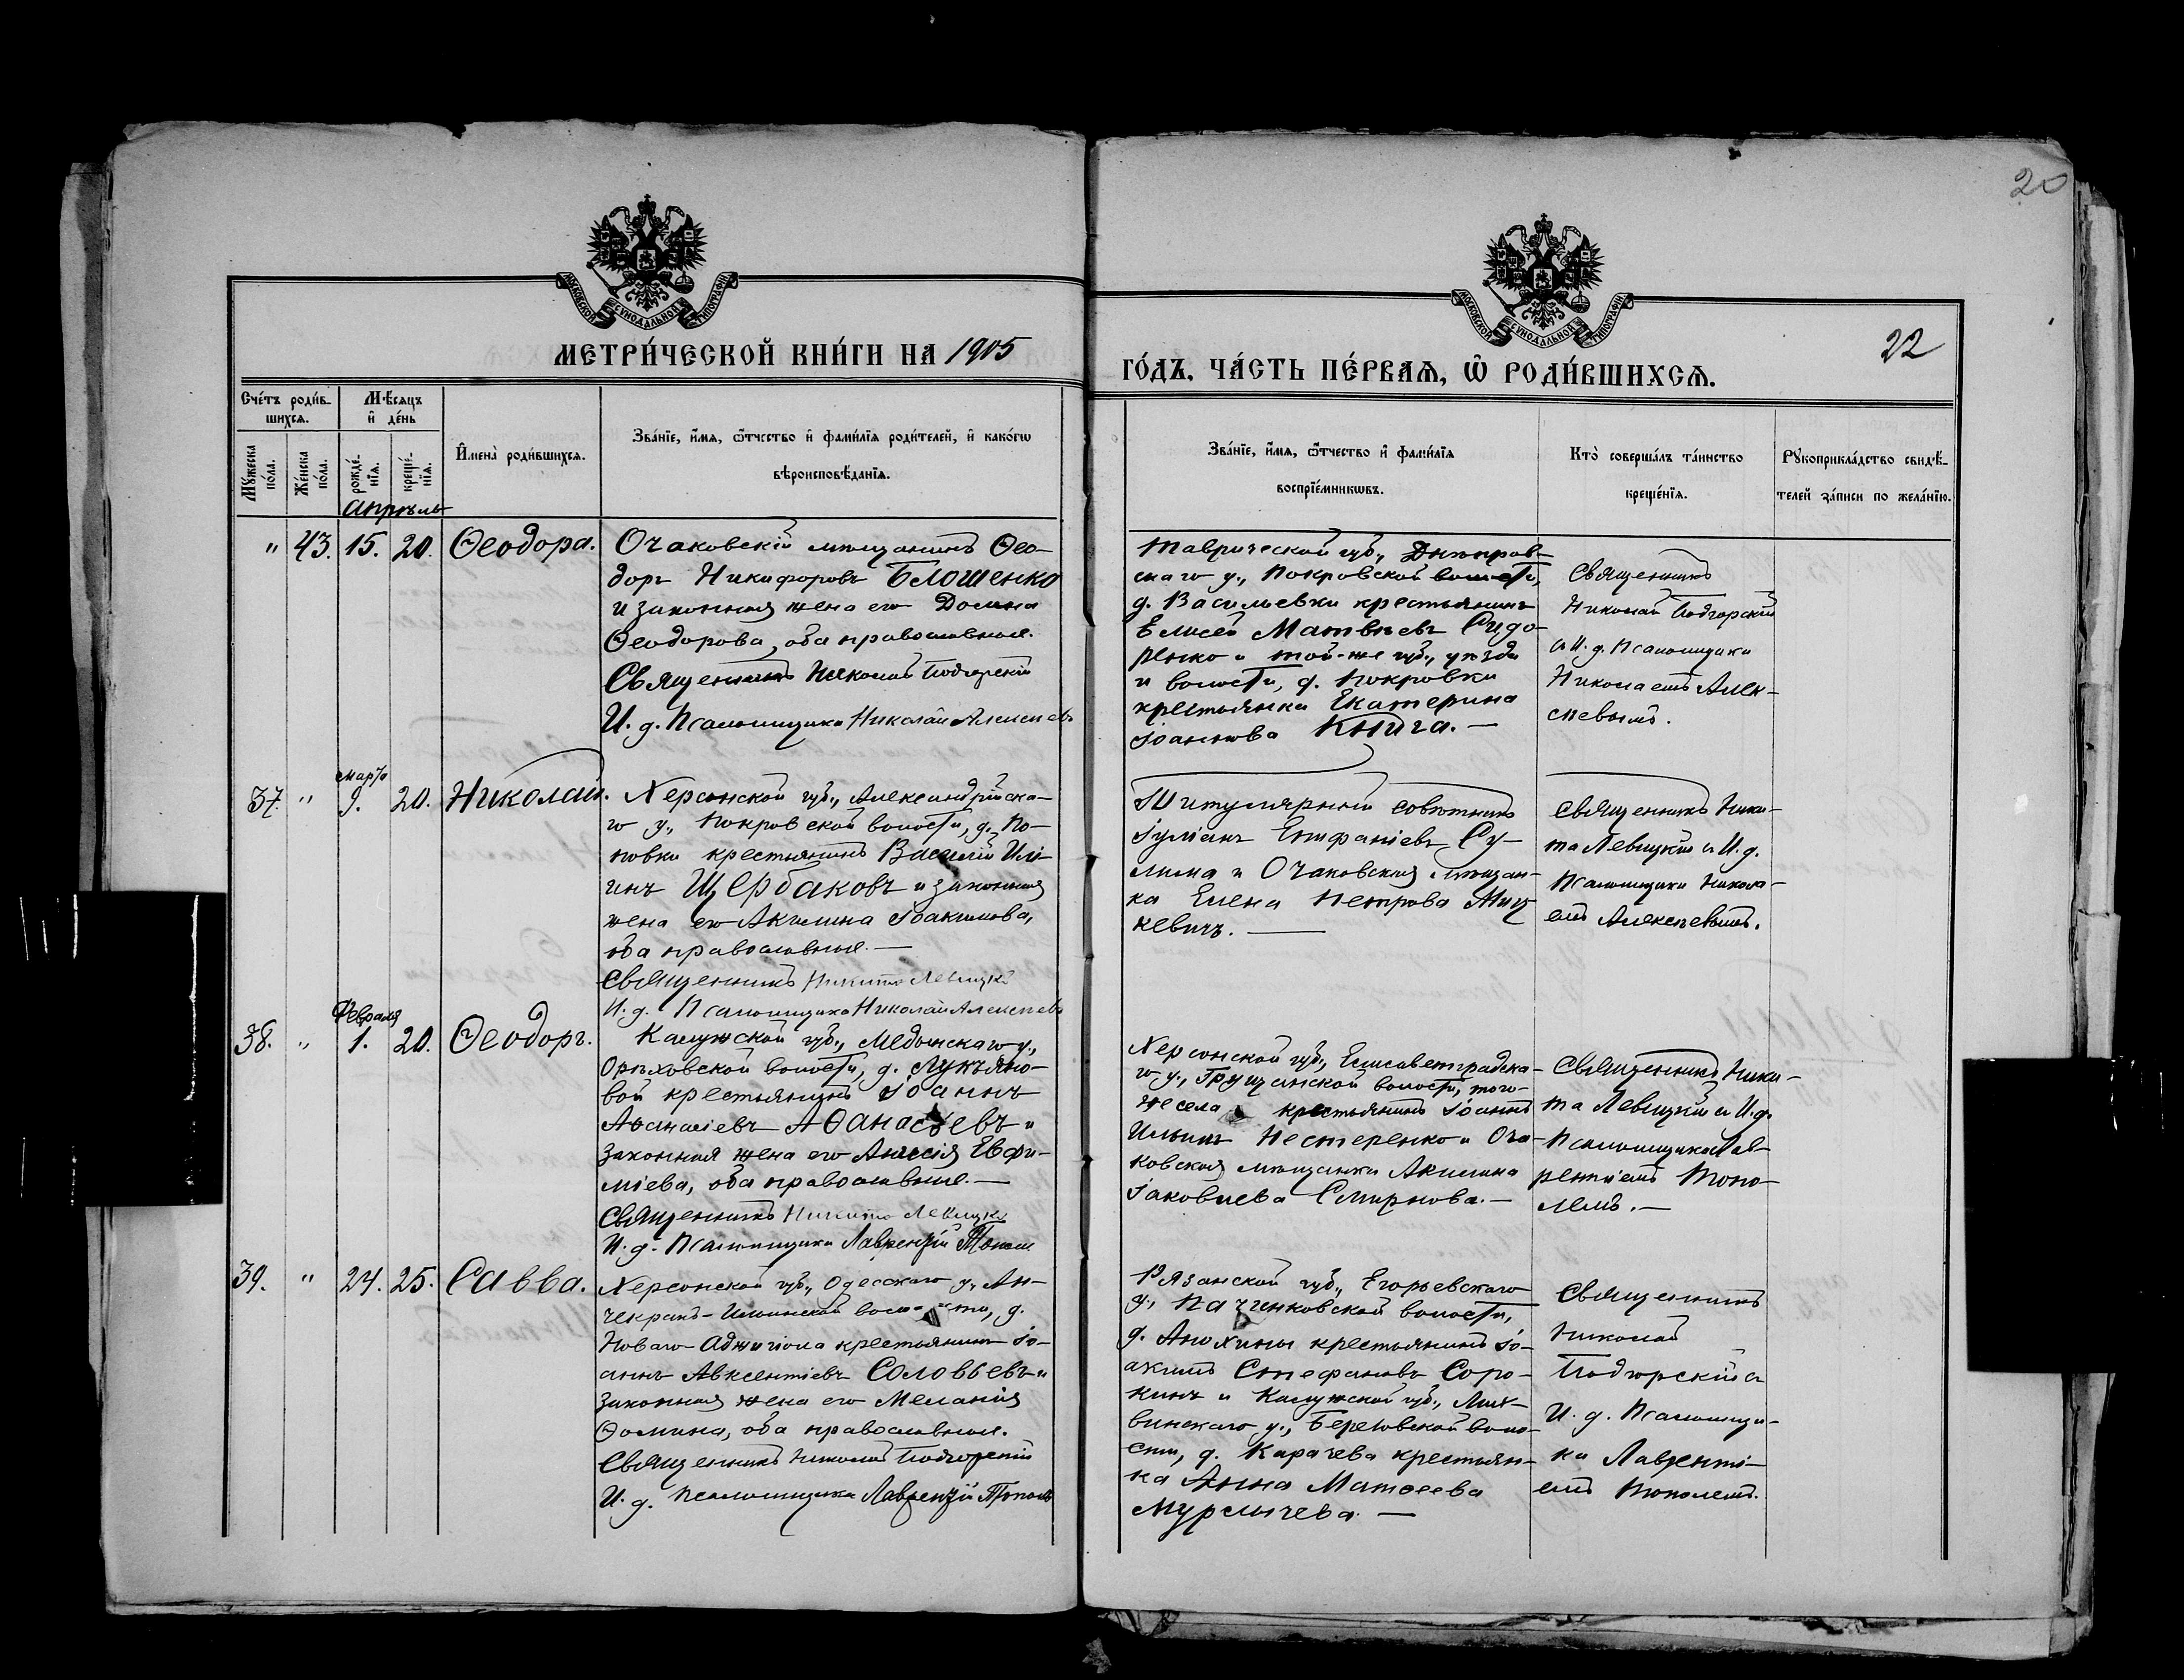 20
МОСКОВСКОЙ СѴНОДАЛЬНОЙ ТИПОГРАФІИ
МОСКОВСКОЙ СѴНОДАЛЬНОЙ ТИПОГРАФІИ
МЕТРИ́ЧЕСКОЙ КНИ́ГИ НА 1905
ГО́ДЪ, ЧА́СТЬ ПЕ́РВАѦ, Ѡ҆ РОДИ́ВШИХСѦ.
22
Сче́тъ роди́в-
шихсѧ.
Мѣ́сѧцъ
и҆ де́нь
Мꙋ́жеска
по́ла.
Же́нска
по́ла.
рожде́-
нїѧ.
креще́-
нїѧ.
И҆мена̀ роди́вшихсѧ.
Зва́нїе, и҆́мѧ, ѻ҆́тчество и҆ фами́лїѧ роди́телей, и҆ како́гѡ
вѣроисповѣ́данїѧ.
Зва́нїе, и҆́мѧ, ѻ҆́тчество и҆ фами́лїѧ
воспрїе́мникѡвъ.
Кто̀ соверша́лъ та́инство
креще́нїѧ.
Рꙋкоприкла́дство свидѣ́-
телей за́писи по жела́нїю.
Апрѣль
" 43. 15. 20. Ѳеодора.
Очаковскій мѣщанинъ Ѳео-
доръ Никифоровъ Блошенко
и законная жена его Домна
Ѳеодорова, оба православные.
Священникъ Николай Подгорскій
И. д. Псаломщика Николай Алексѣевъ
Таврической губ., Днѣпров-
скаго у., Покровской волости,
д. Васильевки крестьянинъ
Елисей Матвѣевъ Сидо-
ренко и той-же губ., уѣзда
и волости, д. Покровки
крестьянка Екатерина
Іоаннова Книга. —
Священникъ
Николай Подгорскій
и И. д. Псаломщика
Николаемъ Алек-
сѣевымъ.
Марта
37. " 9. 20. Николай.
Херсонской губ., Александрійска-
го у., Покровской волости, д. По-
повки крестьянинъ Василій Иль-
инъ Щербаковъ и законная
жена его Акилина Іоакимова,
оба православные. —
Священникъ Никита Левицкій
И. д. Псаломщика Николай Алексѣевъ
Титулярный совѣтникъ
Іуліанъ Епифаніевъ Су-
лима и Очаковская мѣщан-
ка Елена Петрова Миц
кевичъ. —
Священникъ Ники-
та Левицкій и И. д.
Псаломщика Никола-
емъ Алексѣевымъ.
Февраля
38. " 1. 20. Ѳеодоръ.
Калужской губ., Медынскаго у.,
Орѣховской волости, д. Лукьяно-
вой крестьянинъ Іоаннъ
Аѳанасіевъ Аѳанасьевъ и
законная жена его Анисія Евфи-
міева, оба православные. —
Священникъ Никита Левицкій
И. д. Псаломщика Лаврентій Тополь
Херсонской губ., Елисаветградска-
го у., Грущанской волости, того-
же села крестьянинъ Іоаннъ
Ильинъ Нестеренко и Оча-
ковская мѣщанка Акилина
Іаковлева Смирнова. —
Священникъ Ники-
та Левицкій и И. д.
Псаломщика Лав-
рентіемъ Топо-
лемъ. —
39. " 24. 25. Савва.
Херсонской губ., Одесскаго у., Ан-
чекракъ-Ильинской волости, д.
Новаго Аджигіола крестьянинъ Іо-
аннъ Авксентіевъ Соловьевъ и
законная жена его Меланія
Ѳомина, оба православные.
Священникъ Николай Подгорскій
И. д. Псаломщика Лаврентій Тополь
Рязанской губ., Егорьевскаго
у., Починковской волости,
д. Анохины крестьянинъ Іо-
акимъ Стефановъ Соро-
кинъ и Калужской губ., Лих-
винскаго у., Береговской воло-
сти, д. Карачева крестьян-
ка Анна Матѳеева
Мурлычева. —
Священникъ
Николай
Подгорскій и
И. д. Псаломщи-
ка Лавренті-
емъ Тополемъ.